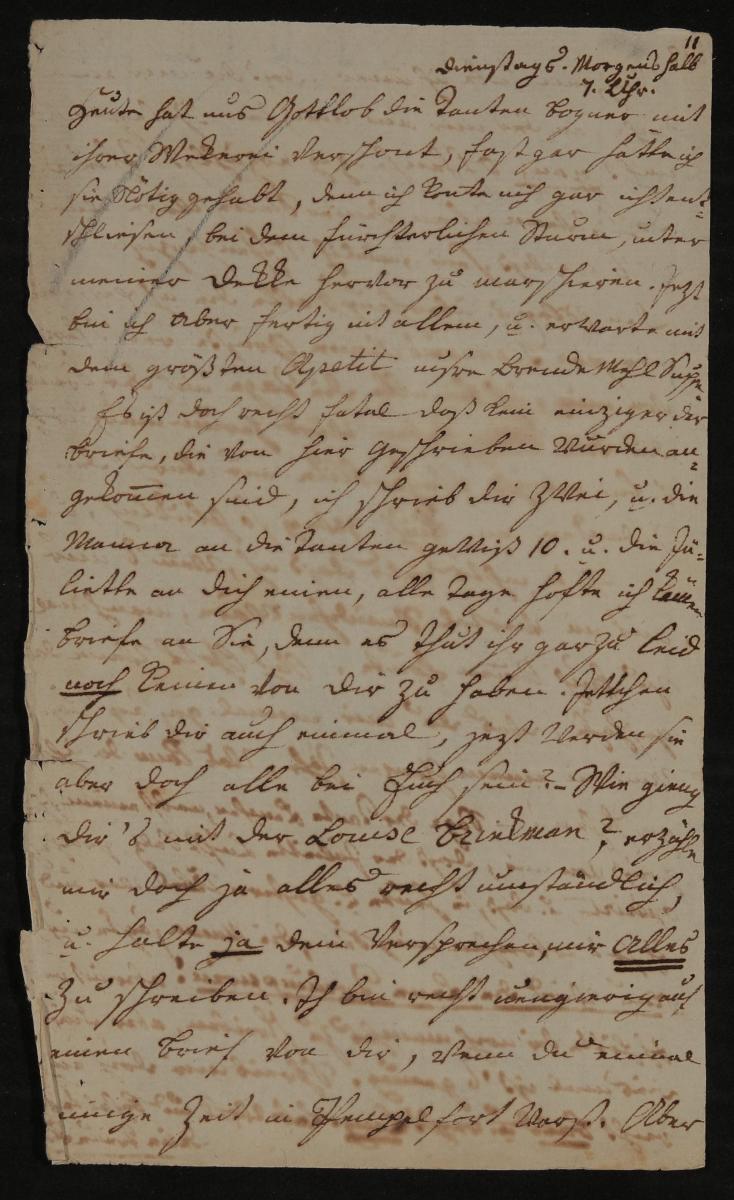 11
Dienstags. Morgens halb
7. Uhr.
Heute hat uns Gottlob die Tanten Bogner mit
ihrer Wekerei verschont, fast gar hätte ich
sie Nötig gehabt, denn ich konte mich gar nicht ent=
schliesen, bei dem fürchterlichen Sturm, unter
meiner Dekke hervor zu marschieren. Jezt
bin ich aber fertig mit allem, u. erwarte mit
dem größten Apetit unsre Brende Mehl Suppe
Es ist doch recht fatal daß kein einziger der
Briefe, die von hier geschrieben wurden an=
gekommen sind, ich schrieb dir zwei, u. die
Mamma an die Tanten gewiß 10. u. die Ju=
liette an dich einen, alle Tage hofte ich kämen
Briefe an Sie, denn es thut ihr gar zu leid
noch keinen von dir zu haben. Jettchen
schrieb dir auch einmal, jezt werden sie
aber doch alle bei Euch sein? – Wie gieng
dir's mit der Louise Brinkman?, erzähle
mir doch ja alles recht umständlich,
u. halte ja dein Versprechen, mir Alles
zu schreiben. Ich bin recht neugierig auf
einen Brief von dir, wenn du einmal
einige Zeit in Pempelfort warst. Aber